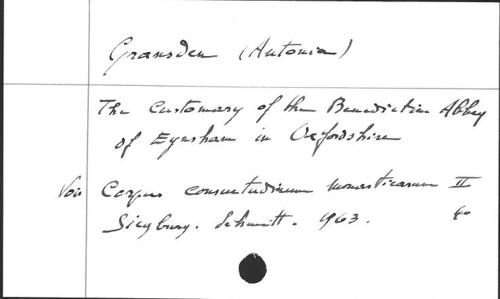 Gransden (Antonia)
The Customary of the Benedictine Abbey
of Eynsham in Oxfordshire
Voir Corpus consuetudinum monasticarum II
Siegburg. Schmitt. 1963. 8°